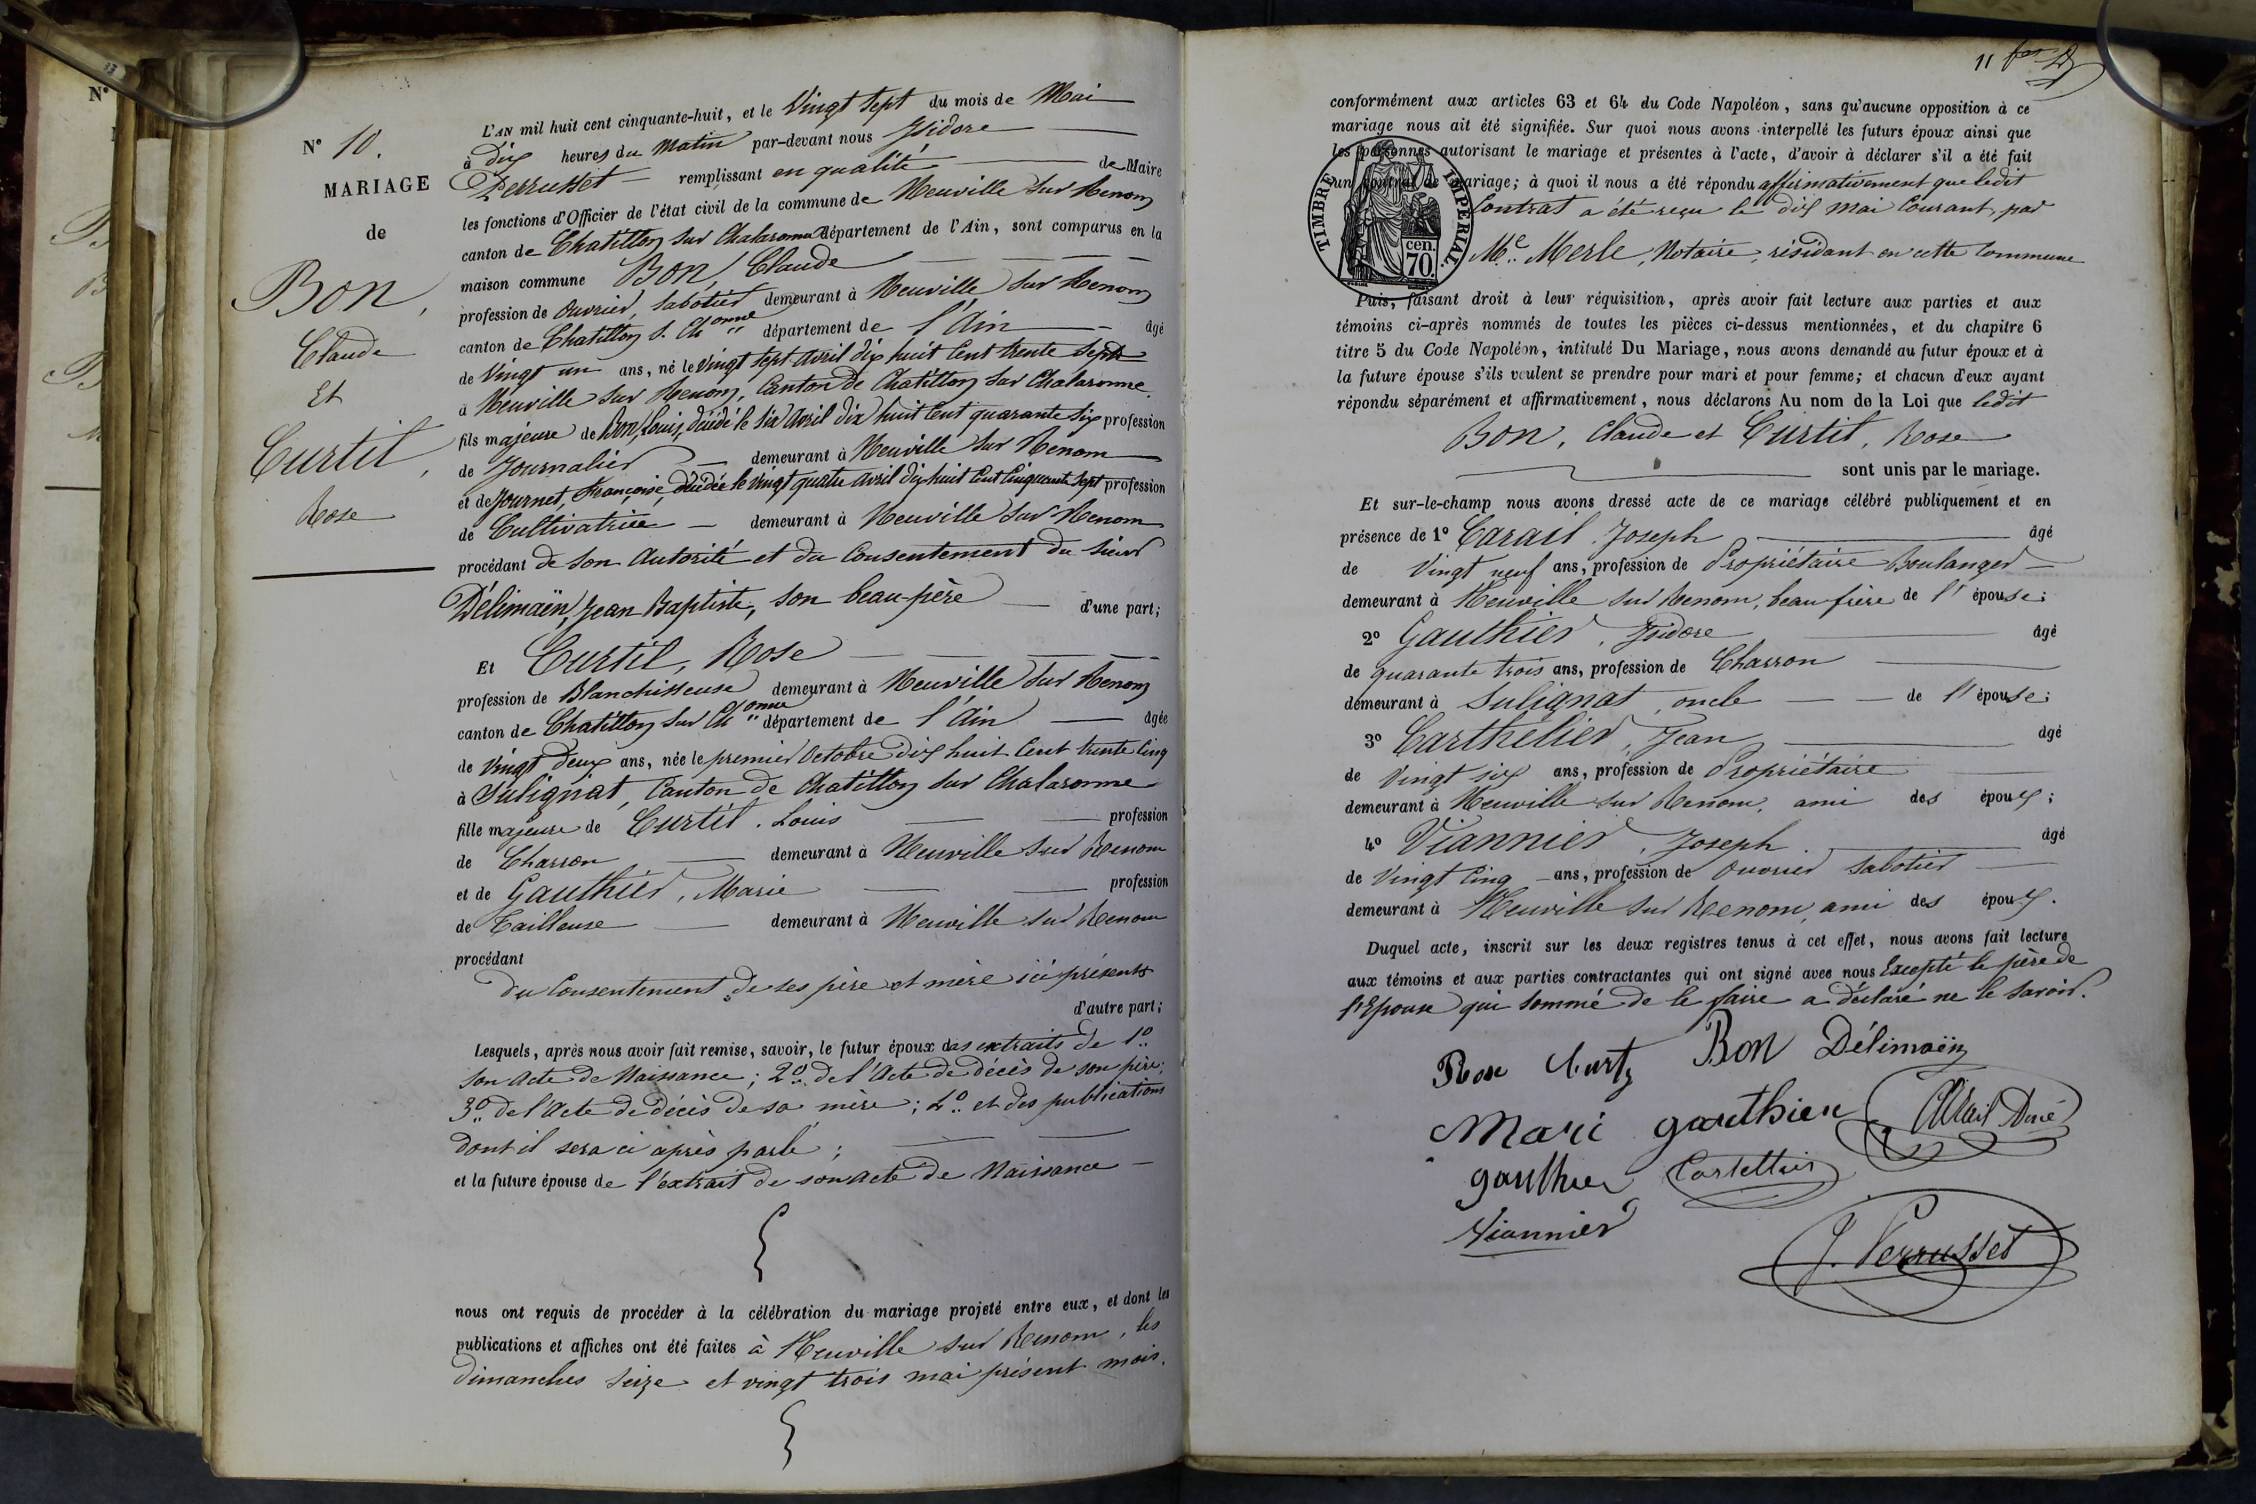 N°
N° 10.
MARIAGE
de
Bon,
Claude
Et
Curtil,
Rose
L'AN mil huit cent cinquante-huit, et le Vingt Sept du mois de Mai
à dix heures du Matin par-devant nous Isidore
Perrusset remplissant en qualité de Maire
les fonctions d'Officier de l'état civil de la commune de Neuville sur Renom
canton de Chatillon sur Chalaronne département de l'Ain, sont comparus en la
maison commune Bon, Claude
profession de Ouvrier, Sabotier demeurant à Neuville sur Renom
canton de Chatillon s. Chonne département de l'Ain âgé
de Vingt un ans, né le Vingt sept avril dix huit Cent trente Sept
à Neuville sur Renom, Canton de Chatillon sur Chalaronne
fils majeure de Bon, Louis, décédé le six avril dix huit Cent quarante six profession
de Journalier demeurant à Neuville sur Renom
et de Journet, Françoise, décédée le vingt quatre avril dix huit Cent Cinquante Sept profession
de Cultivatrice demeurant à Neuville sur Renom
procédant de son autorité et du Consentement du sieur
Délimaën, Jean Baptiste, son beau-père d'une part;
Et Curtil, Rose
profession de Blanchisseuse demeurant à Neuville sur Renom
canton de Chatillon sur Chonne département de l'Ain âgée
de Vingt deux ans, née le premier Octobre dix huit Cent trente Cinq
à Sulignat, Canton de Chatillon sur Chalaronne
fille majeure de Curtil, Louis profession
de Charron demeurant à Neuville sur Renom
et de Gauthier, Marie profession
de Tailleuse demeurant à Neuville sur Renom
procédant
du Consentement de ses père et mère ici présents
d'autre part;
Lesquels, après nous avoir fait remise, savoir, le futur époux des extraits de 1°
son acte de Naissance; 2° de l'Acte de Décès de son père;
3° de l'Acte de Décès de sa mère; 4° et des publications
dont il sera ci après parlé;
et la future épouse de l'extrait de son acte de Naissance
nous ont requis de procéder à la célébration du mariage projeté entre eux, et dont les
publications et affiches ont été faites à Neuville sur Renom, les
dimanches seize et vingt trois mai présent mois.
11
conformément aux articles 63 et 64 du Code Napoléon, sans qu'aucune opposition à ce
mariage nous ait été signifiée. Sur quoi nous avons interpellé les futurs époux ainsi que
les personnes autorisant le mariage et présentes à l'acte, d'avoir à déclarer s'il a été fait
un contrat de mariage; à quoi il nous a été répondu affirmativement que ledit
Contrat a été reçu le dix mai Courant, par
Me Merle, Notaire, résidant en cette Commune
TIMBRE IMPERIAL.
cen.
70.
Puis, faisant droit à leur réquisition, après avoir fait lecture aux parties et aux
témoins ci-après nommés de toutes les pièces ci-dessus mentionnées, et du chapitre 6
titre 5 du Code Napoléon, intitulé Du Mariage, nous avons demandé au futur époux et à
la future épouse s'ils veulent se prendre pour mari et pour femme; et chacun d'eux ayant
répondu séparément et affirmativement, nous déclarons Au nom de la Loi que ledit
Bon, Claude et Curtil, Rose
sont unis par le mariage.
Et sur-le-champ nous avons dressé acte de ce mariage célébré publiquement et en
présence de 1° Carail, Joseph âgé
de Vingt neuf ans, profession de Propriétaire Boulanger
demeurant à Neuville sur Renom, beau frère de l'épouse;
2° Gauthier, Isidore âgé
de quarante trois ans, profession de Charron
demeurant à Sulignat, oncle de l'épouse;
3° Carthelier, Jean âgé
de Vingt six ans, profession de Propriétaire
demeurant à Neuville sur Renom, ami des époux;
4° Viannier, Joseph âgé
de Vingt Cinq ans, profession de Ouvrier Sabotier
demeurant à Neuville sur Renom, ami des époux.
Duquel acte, inscrit sur les deux registres tenus à cet effet, nous avons fait lecture
aux témoins et aux parties contractantes qui ont signé avec nous Excepté le père de
l'Epouse qui sommé de le faire a déclaré ne le savoir.
Rose Curty Bon Délimaën
Mari gauthier
gauthier Cartellier
Viannier
J. Perrusset